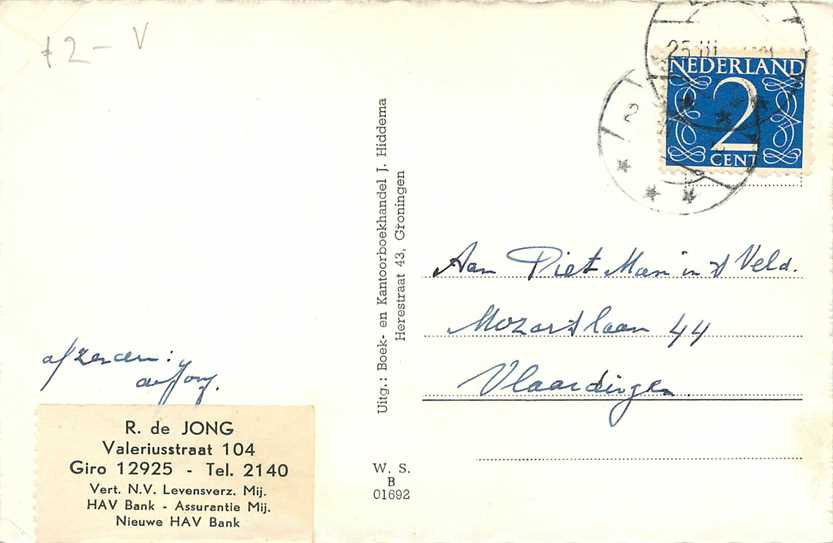 72 - V
25 III
NEDERLAND
2
CENT
Uitg.: Boek- en Kantoorboekhandel J. Hiddema
Herestraat 43, Groningen
Aan Piet Man in 't Veld.
Mozartslaan 44
Vlaardingen.
afzender:
R. de JONG
Valeriusstraat 104
Giro 12925 - Tel. 2140
Vert. N.V. Levensverz. Mij.
HAV Bank - Assurantie Mij.
Nieuwe HAV Bank
W. S.
B
01692